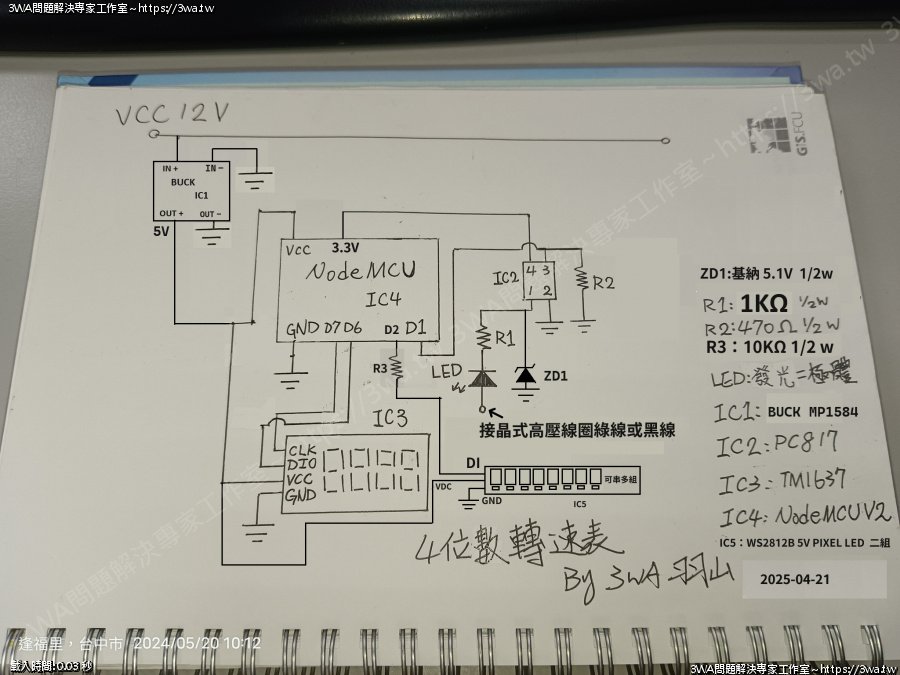 3WA問題解決專家工作室~https://3wa.tw
VCC 12V
GIS.FCU
IN+ IN-
BUCK
IC1
OUT+ OUT-
5V
VCC 3.3V
NodeMCU
IC4
GND D7 D6 D2 D1
IC2
4 3
1 2
R2
R1
R3
LED
ZD1
接晶式高壓線圈綠線或黑線
IC3
CLK
DIO
VCC
GND
DI
VDC
GND
可串多組
IC5
ZD1:基納 5.1V 1/2w
R1: 1KΩ 1/2W
R2:470Ω 1/2W
R3:10KΩ 1/2 w
LED:發光二極體
IC1: BUCK MP1584
IC2:PC817
IC3: TM1637
IC4: NodeMCU V2
IC5:WS2812B 5V PIXEL LED 二組
4位數轉速表
By 3WA 羽山
2025-04-21
3WA問題解決專家工作室~https://3wa.tw
逢福里,台中市 2024/05/20 10:12
載入時間: 0.03 秒
3WA問題解決專家工作室~https://3wa.tw